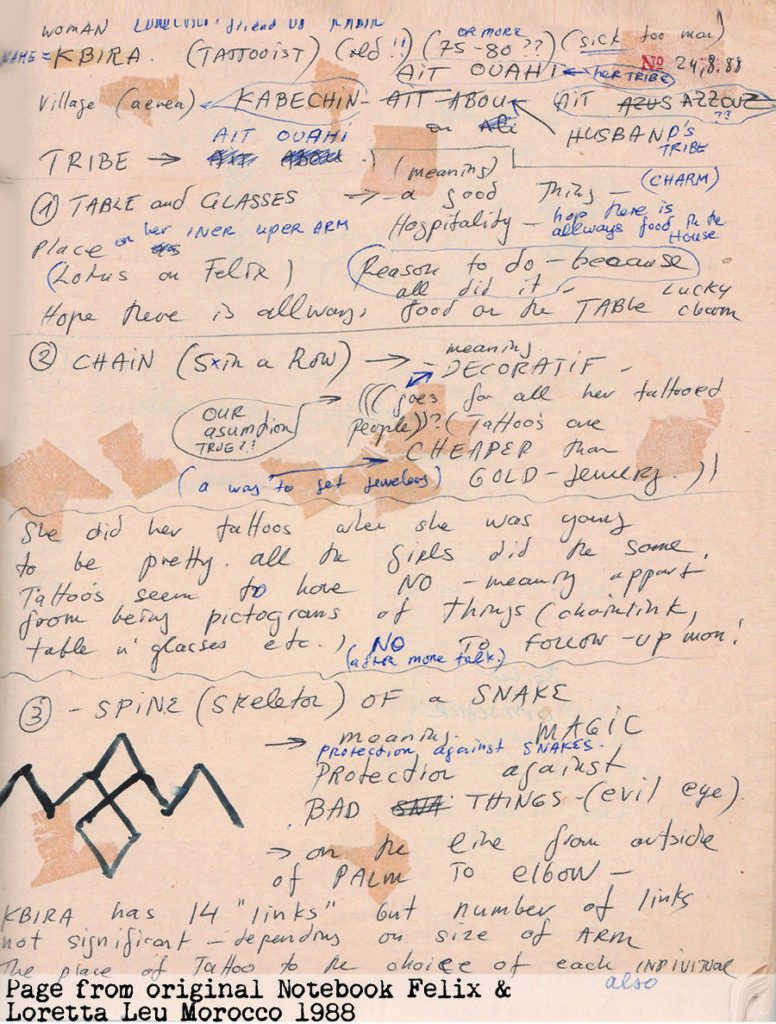 WOMAN friend of
NAME = KBIRA. (TATTOOIST) (old!!) (OR MORE 75-80??) (sick too man)
AIT OUAHI ← her TRIBE No 24,8.88
Village (aerea) KABECHIN - AIT - ABOU AIT AZUS AZZOUZ ??
or HUSBAND'S TRIBE
AIT OUAHI
TRIBE →
(meaning)
① TABLE and GLASSES → a good Thing - (CHARM)
Place on her INER UPER ARM Hospitality - hop there is allways food in the House
(Lotus on Felix) (Reason to do - because
all did it - LUCKY
Hope there is allways food on the TABLE charm
meaning
② CHAIN (5x in a Row) → - DECORATIF -
(((goes for all her tattooed
OUR asumtion TRUE?? people))?(Tattoo's are
CHEAPER than
(a way to get jewelery) GOLD - Jewelry.))
She did her tattoos when she was young
to be pretty. all the girls did the same.
Tattoo's seem to have NO - meaning appart
from being pictograms of things (chainlink,
table n' glasses etc.) NO TO FOLLOW - UP mon!
(after more talk.)
③ - SPINE (Skeleton) OF a SNAKE
→ meaning. MAGIC
PROTECTION against SNAKES.
Protection against
BAD SNA THINGS - (evil eye).
→ on the line from outside
of PALM TO elbow -
KBIRA has 14 "links" but number of links
not significant - depending on size of ARM
The place of Tattoo to the choice of each INDIVITUAL
also
Page from original Notebook Felix &
Loretta Leu Morocco 1988